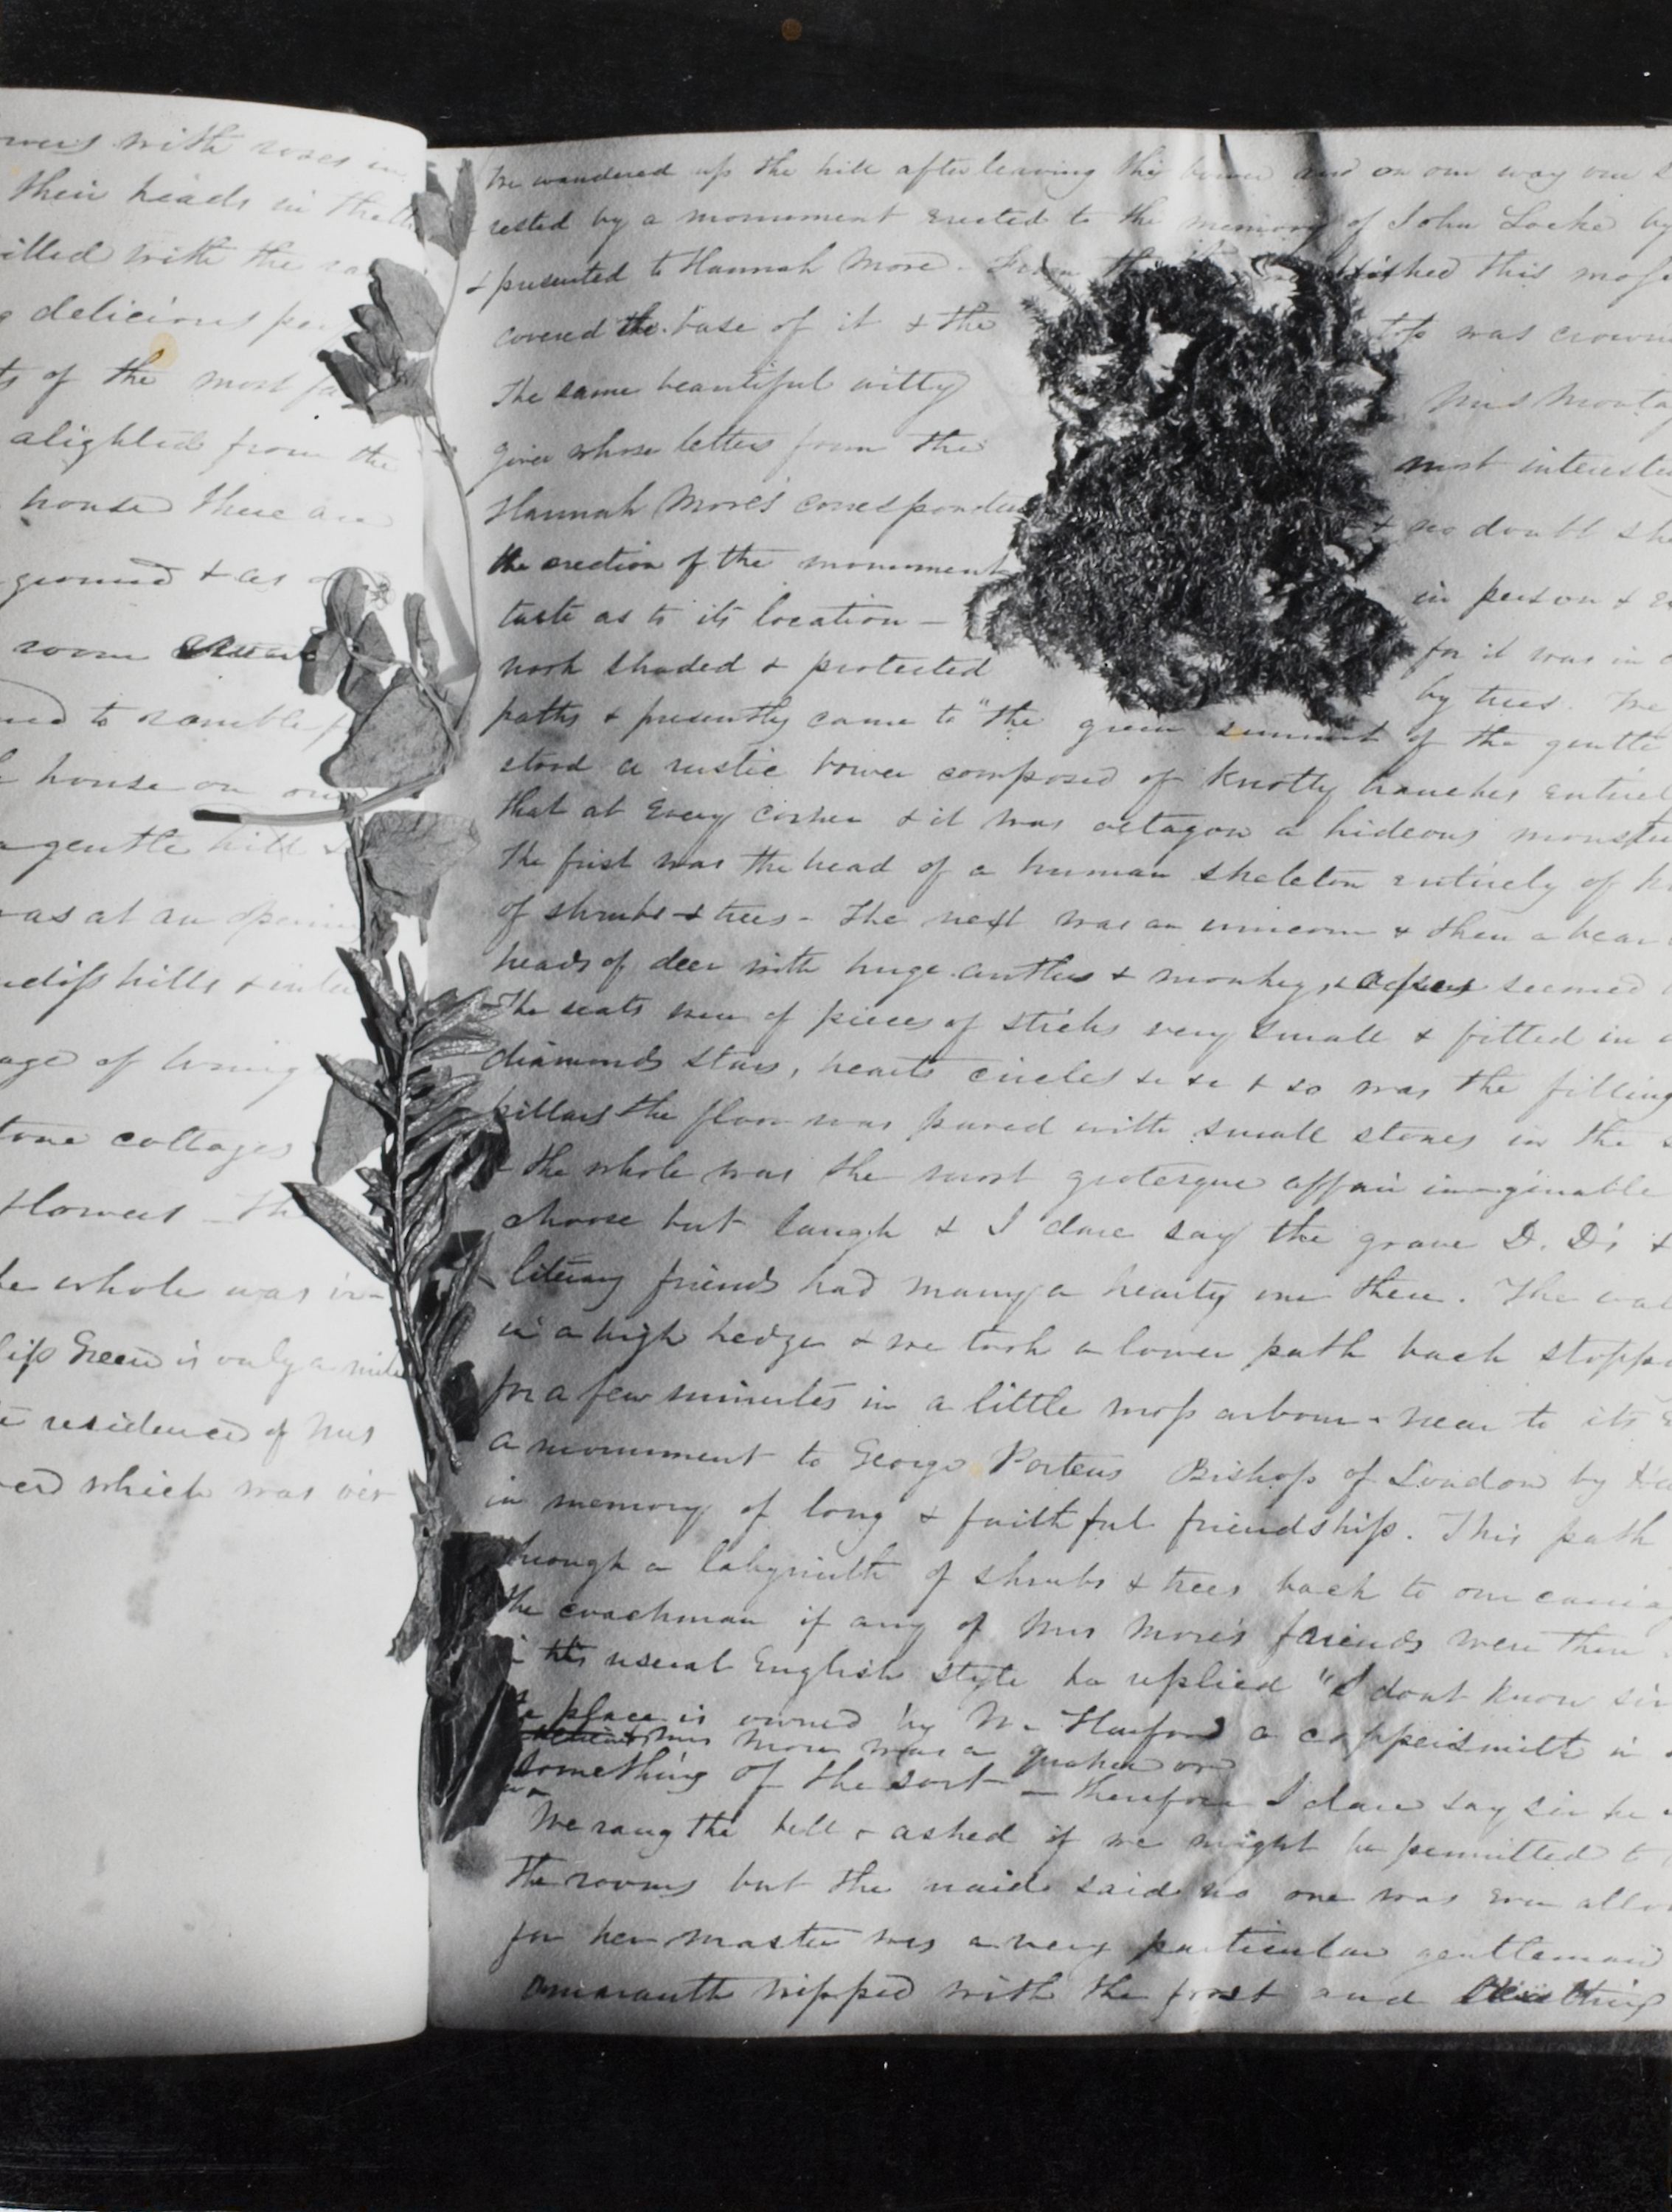 with roses in
their heads in
with the
delicious
of the most
alighted from the
house there are
ground & as
room
to ramble
house on our
gentle hill
as at an
hills &
age of
cottages
flowers – Th
whole was ir-
Green is only a mile
residence of Mrs
which was

We wandered up the hill after leaving this bower and on our way our
rested by a monument erected to the memory of John Locke by
& presented to Hannah More – this moss
covered the base of it & the top was crown
The same beautiful witty Mrs Monta
giver whose letters form the most interesti
Hannah More's corresponden & no doubt she
the erection of the monument in person &
taste as to its location – for it was in a
nook shaded & protected by trees. We
paths & presently came to "the green summit of the gentle
stood a rustic bower composed of knotty branches entirel
that at every corner & it was octagon a hideous monster
The first was the head of a human skeleton entirely of
of shrubs & trees – The next was an unicorn & then a bear
heads of deer with huge antlers & monkey, & seemed
The seats were of pieces of sticks very small & fitted in
diamonds stars, hearts circles &c &c & so was the filling
pillars the floor was paved with small stones in the
& the whole was the most grotesque affair imaginable
choose but laugh & I dare say the grave D. D's &
literary friends had many a hearty one there. The
in a high hedge & we took a lower path back stopp
for a few minutes in a little moss arbour – near to its
a monument to George Porteus Bishop of London by
in memory of long & faithful friendship. This path
through a labyrinth of shrubs & trees back to our carria
the coachman if any of Mrs More's friends were then
in the usual English style he replied "I dont know sir
place is owned by Mr Harford a coppersmith in
Mrs More was a quaker or
something of the sort – therefore I dare say sir he
We rang the bell & asked if we might be permitted to
the rooms but the maid said no one was ever allo
for her master was a very particular gentleman
amaranth nipped with the frost and